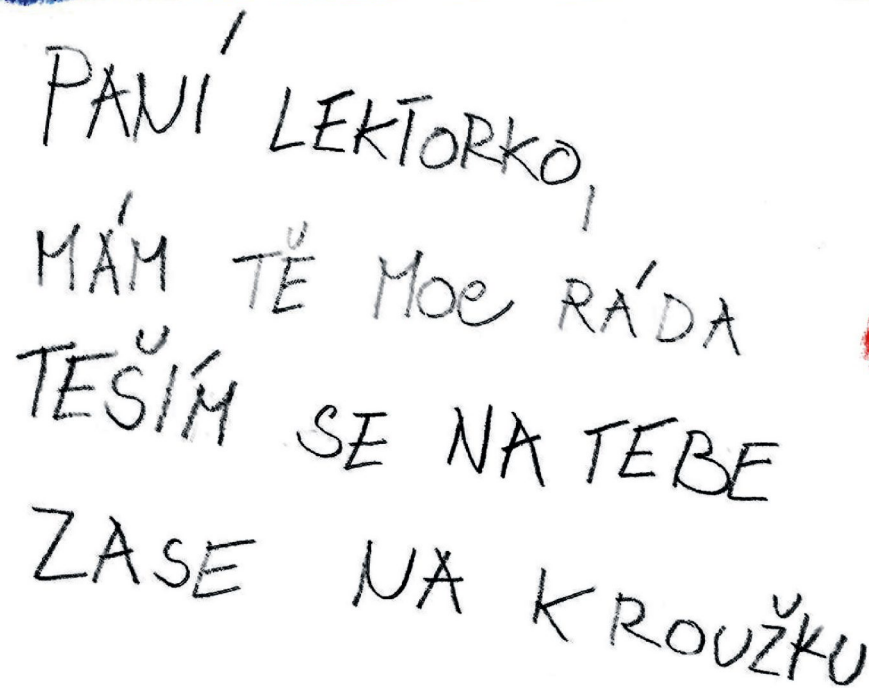 PANÍ LEKTORKO,
MÁM TĚ MOC RÁDA
TEŠÍM SE NA TEBE
ZASE NA KROUŽKU